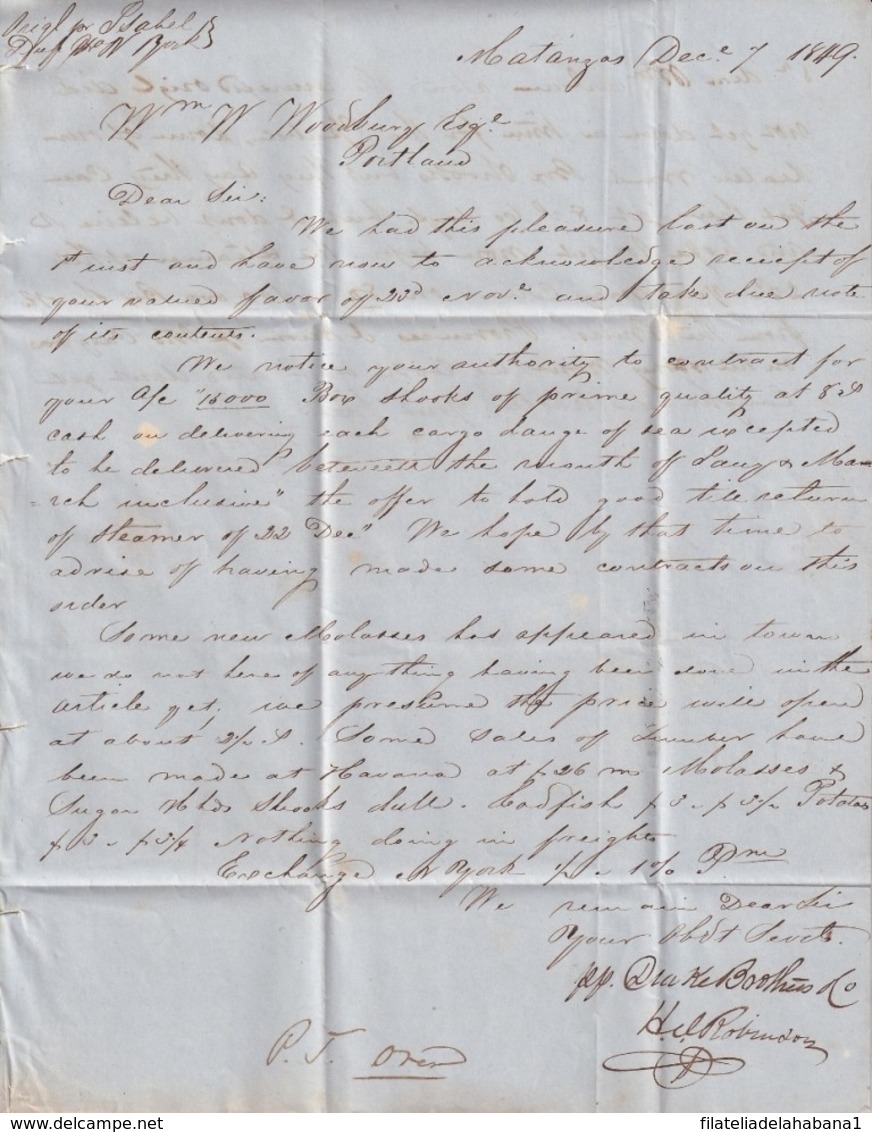 Origl pr Isabel
Dup N York
Matanzas Dece 7 1849.
Wm W Woodbury Esqe
Portland
Dear Sir:
We had this pleasure last on the
1st inst and have now to acknowledge receipt of
your valued favor of 23d Nove and take due note
of its contents.
We notice your authority to contract for
your a/c "15000 Box Shooks of prime quality at 8
cash on delivering each cargo dange of sea excepted
to be delivered between the month of Jany & Ma
=rch inclusive" the offer to hold good till return
of steamer of 22 Dec" We hope by that time to
advise of having made some contracts on this
order
Some new Molasses has appeared in town
we do not here of anything having been done in the
article yet, we presume the price will open
at about 2½ . Some sales of Lumber have
been made at Havana at $26 m Molasses &
Sugar Hhds Shooks dull. Codfish $3 - $3½ Potatoes
$3 - $3¼ Nothing doing in freights
Exchange N York ½ - 1% Pm
We remain Dear Sir
Your Obdt Servts.
pp. Drake Brothers & Co
Robinson
P. T. Over
filateliadelahabana1